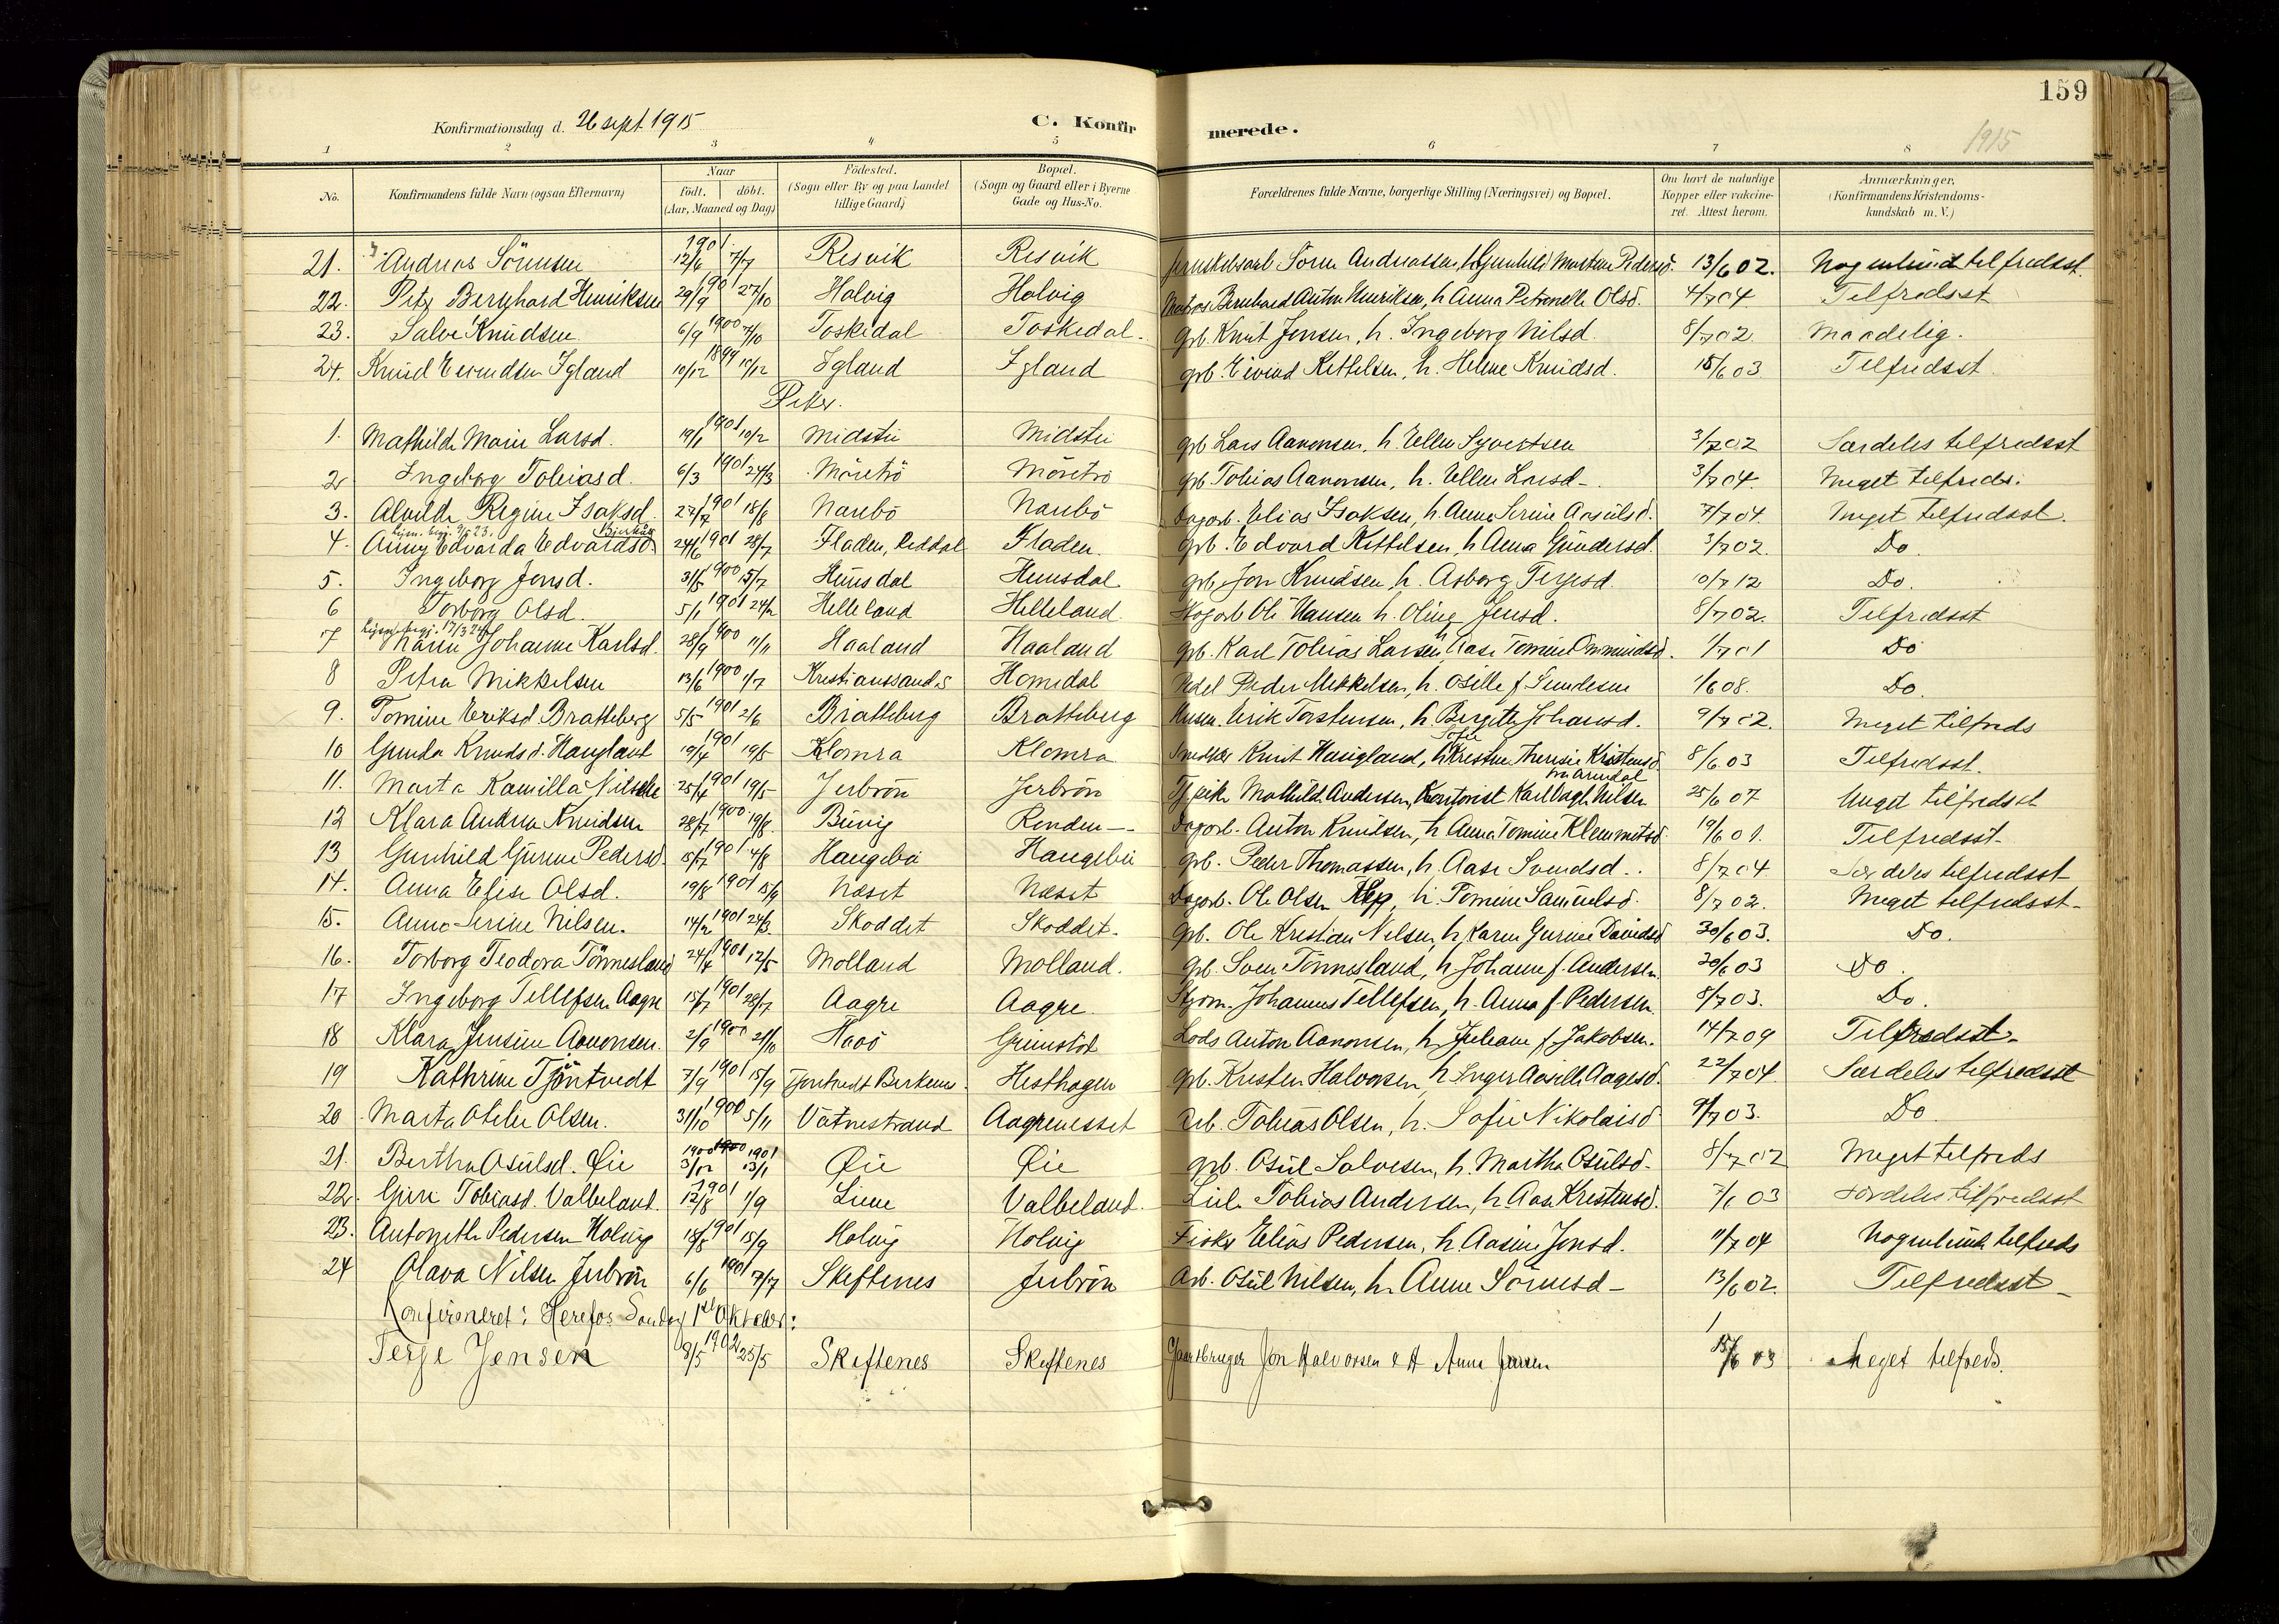 159
Konfirmationsdag d. 26 sept. 1915 C. Konfirmerede.
1915
1 2 3 4 5 6 7 8
No. Konfirmandens fulde Navn (ogsaa Efternavn) Naar födt. döbt. (Aar, Maaned og Dag) Födested. (Sogn eller By og paa Landet tillige Gaard) Bopæl. (Sogn og Gaard eller i Byerne Gade og Hus-No. Forældrenes fulde Navne, borgerlige Stilling (Næringsvei) og Bopæl. Om havt de naturlige Kopper eller vakcineret. Attest herom. Anmærkninger, (Konfirmandens Kristendomskundskab m. V.)
21. Andreas Sörensen 1901 12/6 7/7 Resvik Resvik Sörn Andreassen, h. Gunhild 13/6 02. Nogenlund tilfredsst.
22. Berghard Henriksen 29/9 1901 27/10 Holvig Holvig Bernhard Anton Henriksen, h. Anna Petronelle Olsd. 4/7 04 Tilfredsst
23. Salve Knudsen 6/9 1900 7/10 Toskedal Toskedal. Grb. Knut Jensen, h. Ingeborg Nilsd. 8/7 02. Maadelig.
24. Knud Eivindsen Igland 10/12 1899 Igland Igland Grb. Eivind Kettelsen, h. Helene Knudsd. 15/6 03 Tilfredsst.
Piker.
1. Mathilde Marie Larsd. 19/1 1901 10/2 Midstü Midstü Grb Lars Aanonsen, h. Ellen Syvertsen 3/7 02 Særdeles tilfredsst
2. Ingeborg Tobiasd. 6/3 1901 24/3 Möretrö Möretrö Grb Tobias Aanonsen, h. Ellen Larsd. 3/7 04. Meget tilfreds.
3. Alvilde Regine Isaksd. 27/7 1901 18/8 Naubö Naubö Dagarb. Elias Isaksen, h. Anna Serine Aasulsd. 7/7 04. Meget tilfredsst.
4. Anny Edvarda Edvardsd 24/6 1901 28/7 Fladen, Reddal Fladen. Grb. Edvard Kittelsen, h Anna Gundersd. 3/7 02. Do
5. Ingeborg Jensd. 1900 15/7 Hunsdal Hunsdal Grb. Jon Knudsen, h. Asborg Terjesd. 10/7 12 Do.
6 Torborg Olsd. 5/1 1901 24/2 Helleland Helleland. Ole Hansen h. Oline Jensd. 8/7 02. Tilfredsst
7 17/3 Karin Johanne Karlsd. 28/9 1900 11/11 Haaland Haaland Grb. Karl Tobias Larsen, h Aase Tomine Ommundsd. 1/7 01 Do
8 Petra Mikkelsen 13/6 1900 1/7 Kristianssands Homdal Peder Mikkelsen, h. Osille f. 1/6 08. Do.
9. Tomine Eriksd Bratteberg 5/5 1901 2/6 Bratteberg Bratteberg Husm. Erik Torstensen, h. Bergitte Johansd. 9/7 02. Meget tilfreds
10 Gunda Knudsd. Hauglant 19/4 1901 19/5 Klomra Klomra Snedker Knut Hauigland, h Kristine Theresie Kristensd. 8/6 03 Tilfredsst.
11. Marta Kamilla Nilsen 25/4 1901 19/5 Jerbrön Jerbrön Mathilde Andersen, Kontorist Karl Dagh. Nilsen fra Arendal 25/6 07 Meget tilfredsst
12 Klara Andrea Knudsen 28/7 1900 19/8. Buvig Renden Dagarb. Anton Knutsen, h Anna Tomine Klemmetsd. 19/6 01. Tilfredsst.
13 Gunhild Gurine Pedersd. 15/7 1901 4/8 Haugebö Haugebö Grb. Peder Thomassen, h. Aase Svendsd. 8/7 04 Særdeles tilfredsst
14. Anna Elise Olsd. 19/8 1901 15/9 Næset Næset Dagarb. Ole Olsen, h. Tomine Samuelsd. 8/7 02. Meget tilfredsst.
15. Anna Serine Nilsen. 14/2 1901 24/3. Skoddet Skoddet. Grb. Ole Kristian Nilsen, h. Karen Gurine Davidsd 30/6 03. Do.
16. Torborg Teodora Tönnesland 24/4 1901 12/5 Molland Molland. Grb. Sven Tönnesland, h Johanne f. Andersen 20/6 03 Do.
17 Ingeborg Tellefsen Aagre 15/7 1901 28/7 Aagre Aagre. Johannes Tellefsen, h. Anna f. Pedersen. 8/7 03. Do.
18 Klara Jensine Aanonsen. 2/9 1900 21/10 Haaö Grimstad Lods Anton Aanonsen, h. Juliane f. Jakobsen. 14/7 09 Tilfredsst.
19 Kathrine Tjöntvedt 7/9 1901 15/9 Tjöntvedt Birkenes Hesthagen Grb. Kristen Halvorsen h. Inger Aasille Aagesd. 22/7 04. Særdeles tilfredsst
20 Marta Otelie Olsen. 31/10 1900 5/11 Vatnestrand Aagrenesset Arb. Tobias Olsen, h. Sofie Nikolaisd 9/7 03. Do.
21. Bertha Osulsd. Øie 1900 3/12 1901 13/1 Øie Øie Grb. Osul Salvesen, h. Martha Osulsd. 8/7 02 Meget tilfreds
22. Guri Tobiasd. Valbeland. 12/8 1901 1/9 Liene Valbeland. Tobias Andersen, h. Aase Kristensd. 7/6 03 Særdeles tilfredsst
23. Antonette Pedersen Holvig 18/8 1901 15/9 Holvig Holvig Fisker Elias Pedersen, h. Aasine Jensd. 11/7 04 Nogenlunde tilfreds
24 Olava Nilsen Jerbrön 6/6 1901 7/7 Skiftenes Jerbrön Arb. Osul Nilsen, h. Anne Sörensd. 13/6 02. Tilfredsst
Konfirmeret i Herefos Söndag 1ste Oktober:
Terje Jensen 8/5 1902 25/5 Skiftenes Skiftenes Gaardbruger Jon Halvorsen & H Anne Jensen 15/6 03 Meget tilfreds.